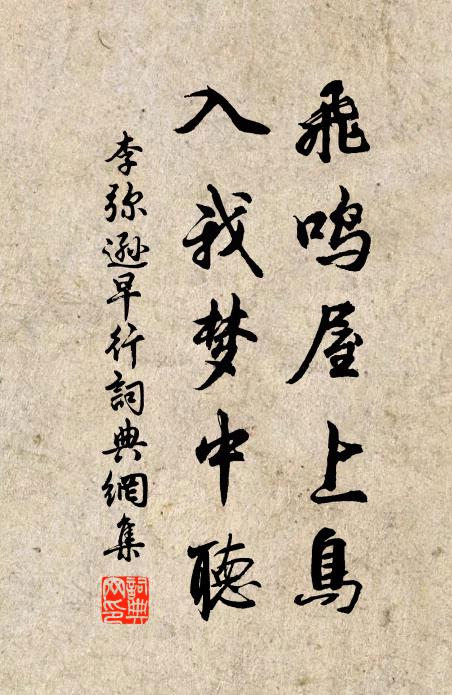 飛鸣屋上鳥
入我梦中聽
李弥遜早行詞典網集
詞典网印